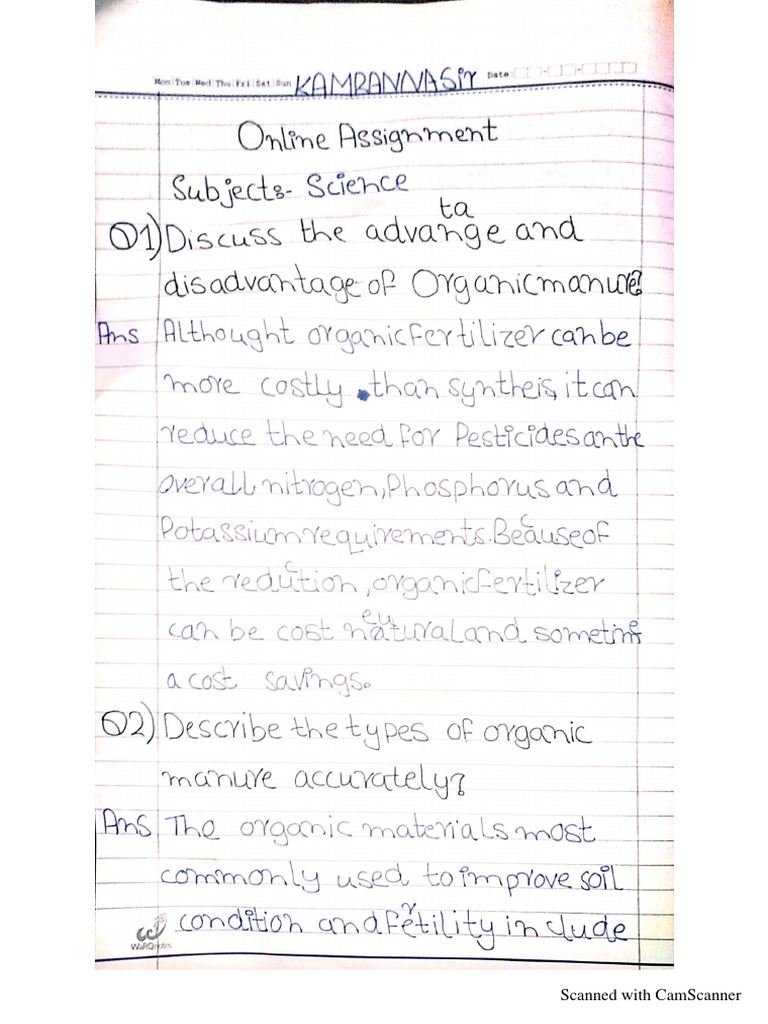 Mon Tue Wed Thu Fri Sat Sun KAMRANNASir Date
Online Assignment
Subject:- Science
Q1) Discuss the advantage and
disadvantage of Organic manure?
Ans Althought organic fertilizer can be
more costly than syntheis, it can
reduce the need for Pesticides an the
overall nitrogen, Phosphorus and
Potassium requirements. Because of
the reduction, organic fertilizer
can be cost neutural and sometime
a cost savings.
Q2) Describe the types of organic
manure accurately?
Ans The organic materials most
commonly used to improve soil
condition and fertility include
WaRQnotes
Scanned with CamScanner